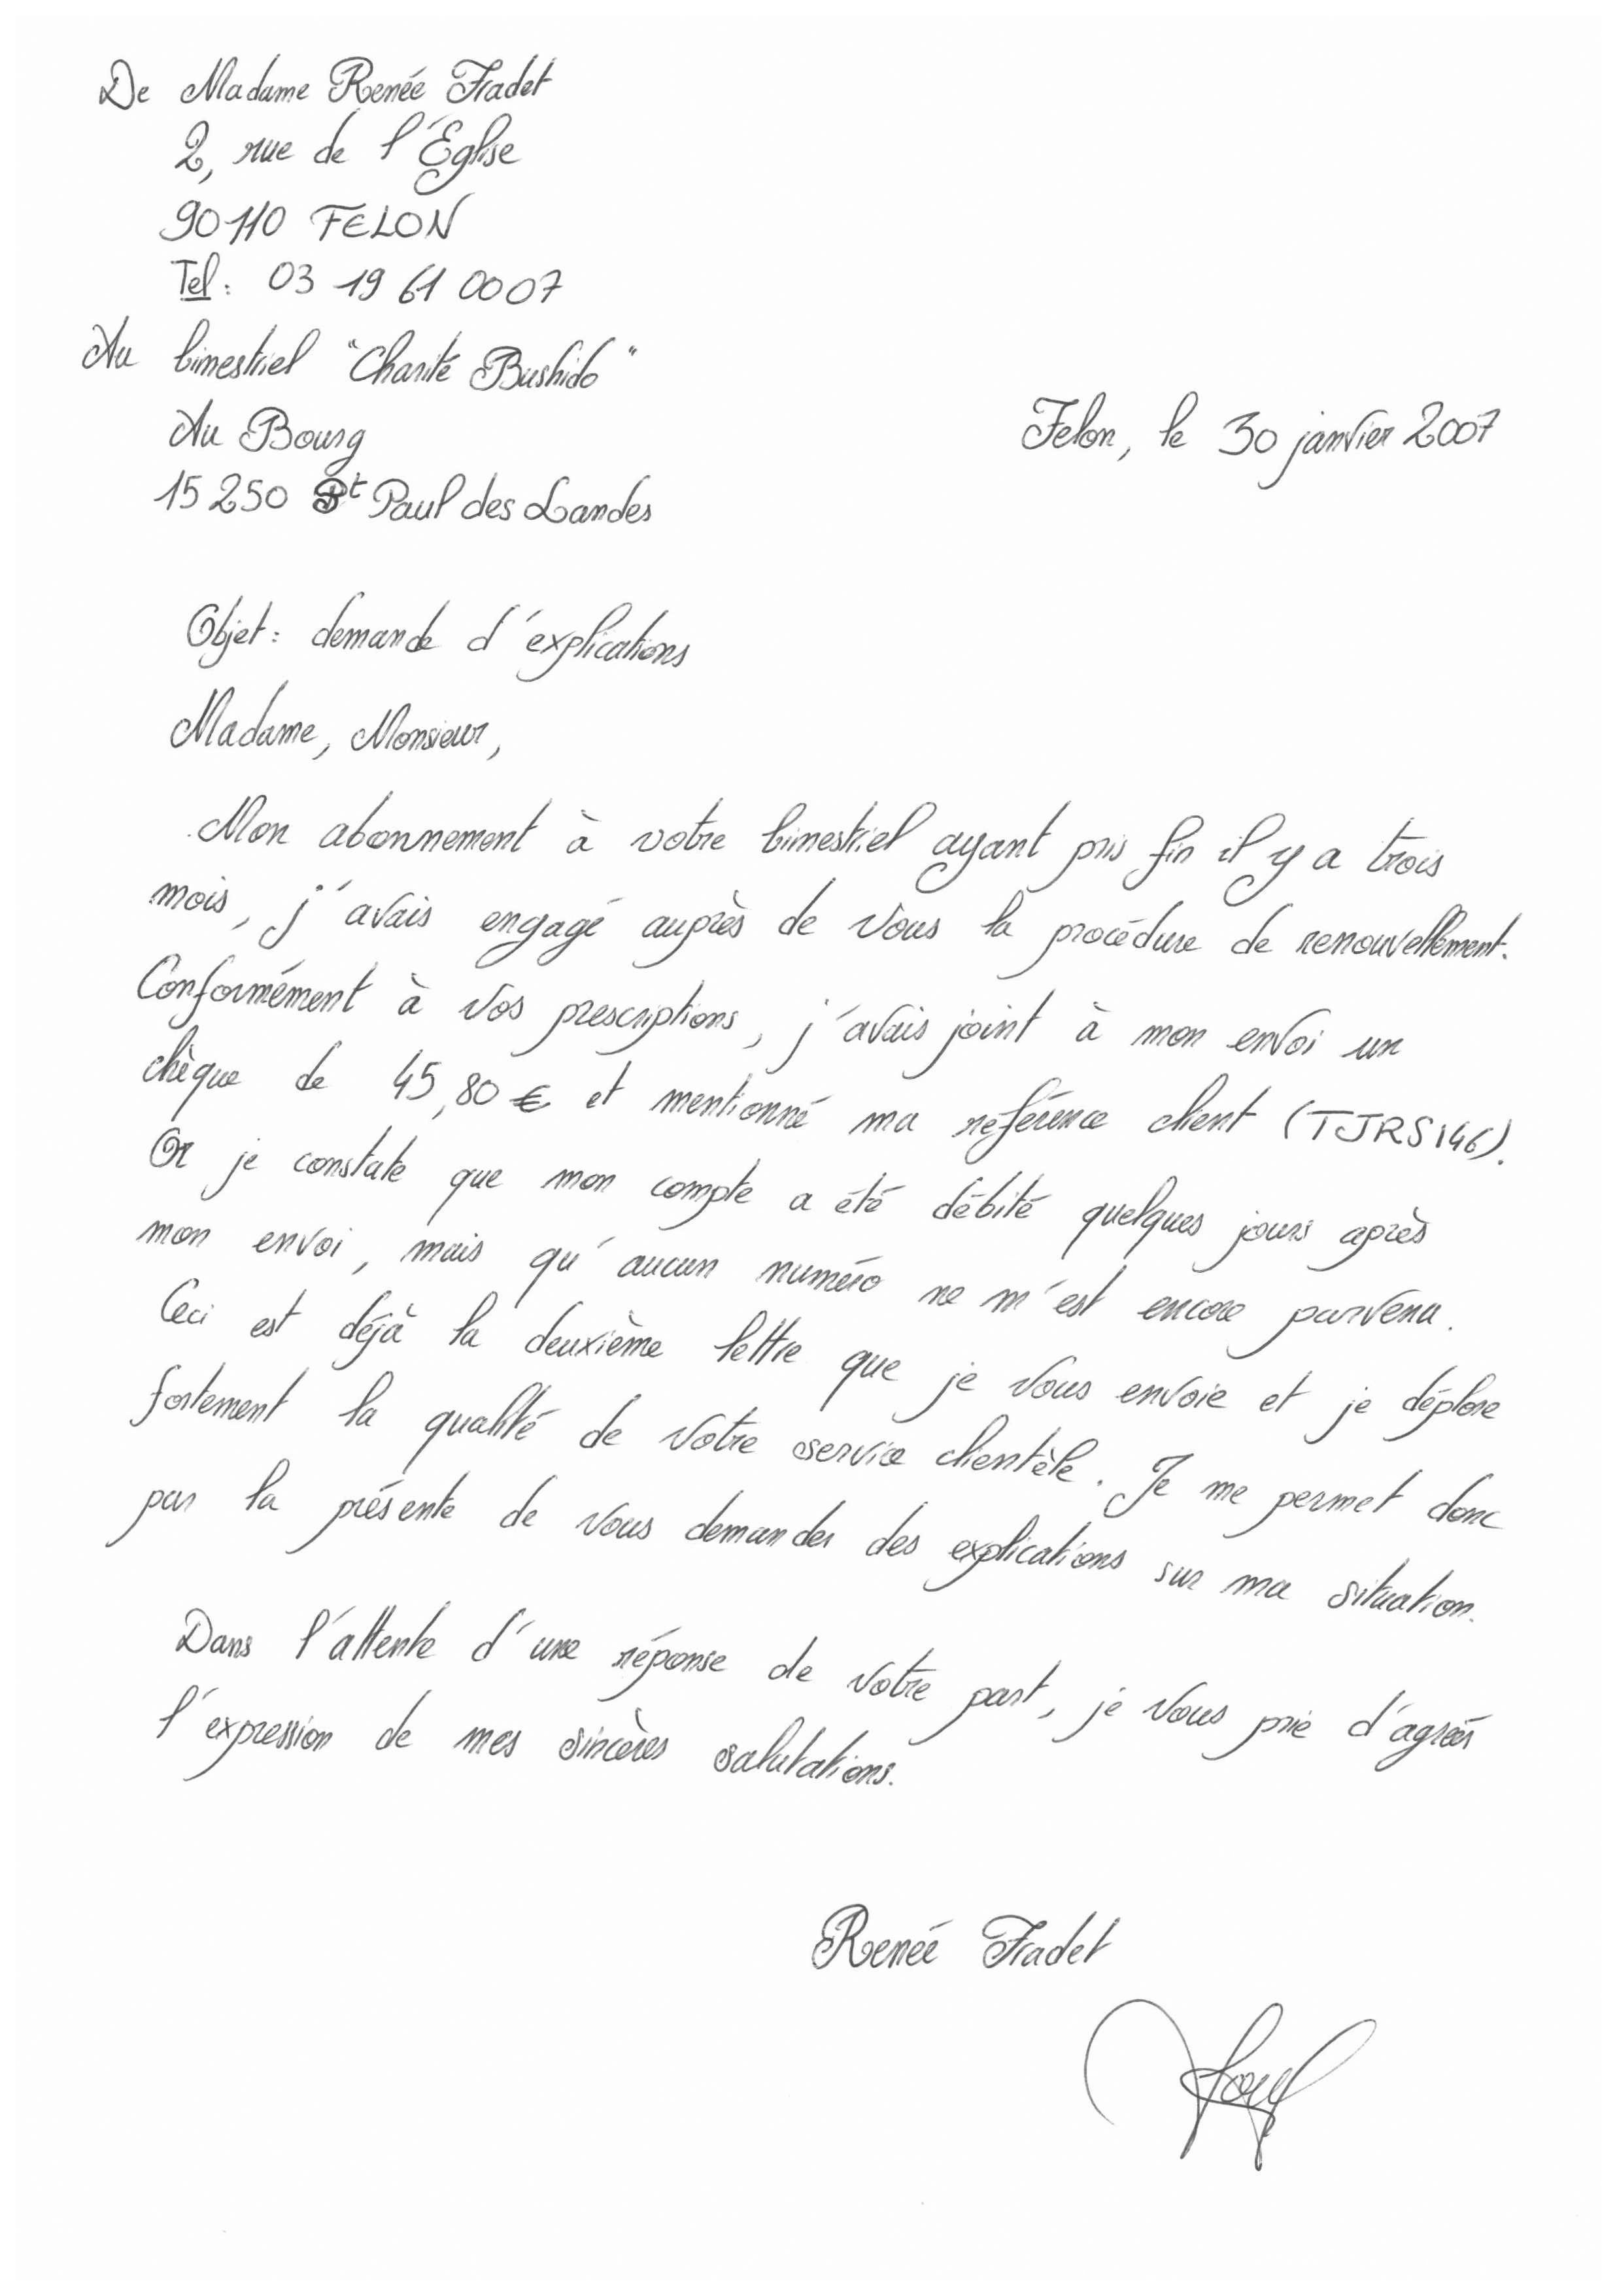 De Madame Renée Fradet
2, rue de l'Église
90110 FELON
Tel : 03 19 61 00 07
Au bimestriel "Charité Bushido"
Au Bourg
Felon, le 30 janvier 2007
15250 St Paul des Landes
Objet : demande d'explications
Madame, Monsieur,
Mon abonnement à votre bimestriel ayant pris fin il y a trois
mois, j'avais engagé auprès de vous la procédure de renouvellement.
Conformément à vos prescriptions, j'avais joint à mon envoi un
chèque de 45,80 € et mentionné ma référence client (TJRS146).
Or je constate que mon compte a été débité quelques jours après
mon envoi, mais qu'aucun numéro ne m'est encore parvenu.
Ceci est déjà la deuxième lettre que je vous envoie et je déplore
fortement la qualité de votre service clientèle. Je me permet donc
par la présente de vous demander des explications sur ma situation.
Dans l'attente d'une réponse de votre part, je vous prie d'agréer
l'expression de mes sincères salutations.
Renée Fradet